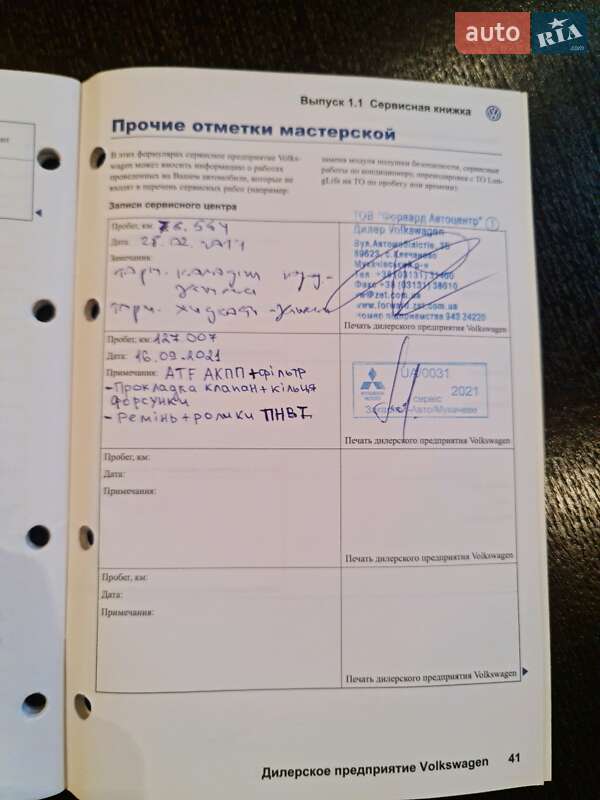 auto RIA .com
Выпуск 1.1 Сервисная книжка
Прочие отметки мастерской
В этих формулярах сервисное предприятие Volks-
wagen может вносить информацию о работах
проведенных на Вашем автомобиле, которые не
входят в перечень сервисных работ (например:
замена модуля подушки безопасности, сервисные
работы по кондиционеру, переподписка с ТО Lon-
gLife на ТО по пробегу или времени).
Записи сервисного центра
Пробег, км:
Дата: 28.02.
Замечания:
торм.
торм.
ТОВ "Форвард Автоцентр" 1
Дилер Volkswagen
Вул.Автомобілістів,
89623, с.Ключарки
Мукачівський р-н
Тел. +38(03131)
Факс +38(03131) 38010
vw@zet.com.ua
www.forward.zet.com.ua
Номер підприємства 943 24220
Печать дилерского предприятия Volkswagen
Пробег, км: 127.007
Дата: 16.09.2021
Примечания: ATF АКПП+фільтр
-Прокладка клапан+кільця
форсунки
-Ремінь+ролики ПНВТ
UA/0031
сервіс 2021
Авто/Мукачеве
Печать дилерского предприятия Volkswagen
Пробег, км:
Дата:
Примечания:
Печать дилерского предприятия Volkswagen
Пробег, км:
Дата:
Примечания:
Печать дилерского предприятия Volkswagen
Дилерское предприятие Volkswagen 41